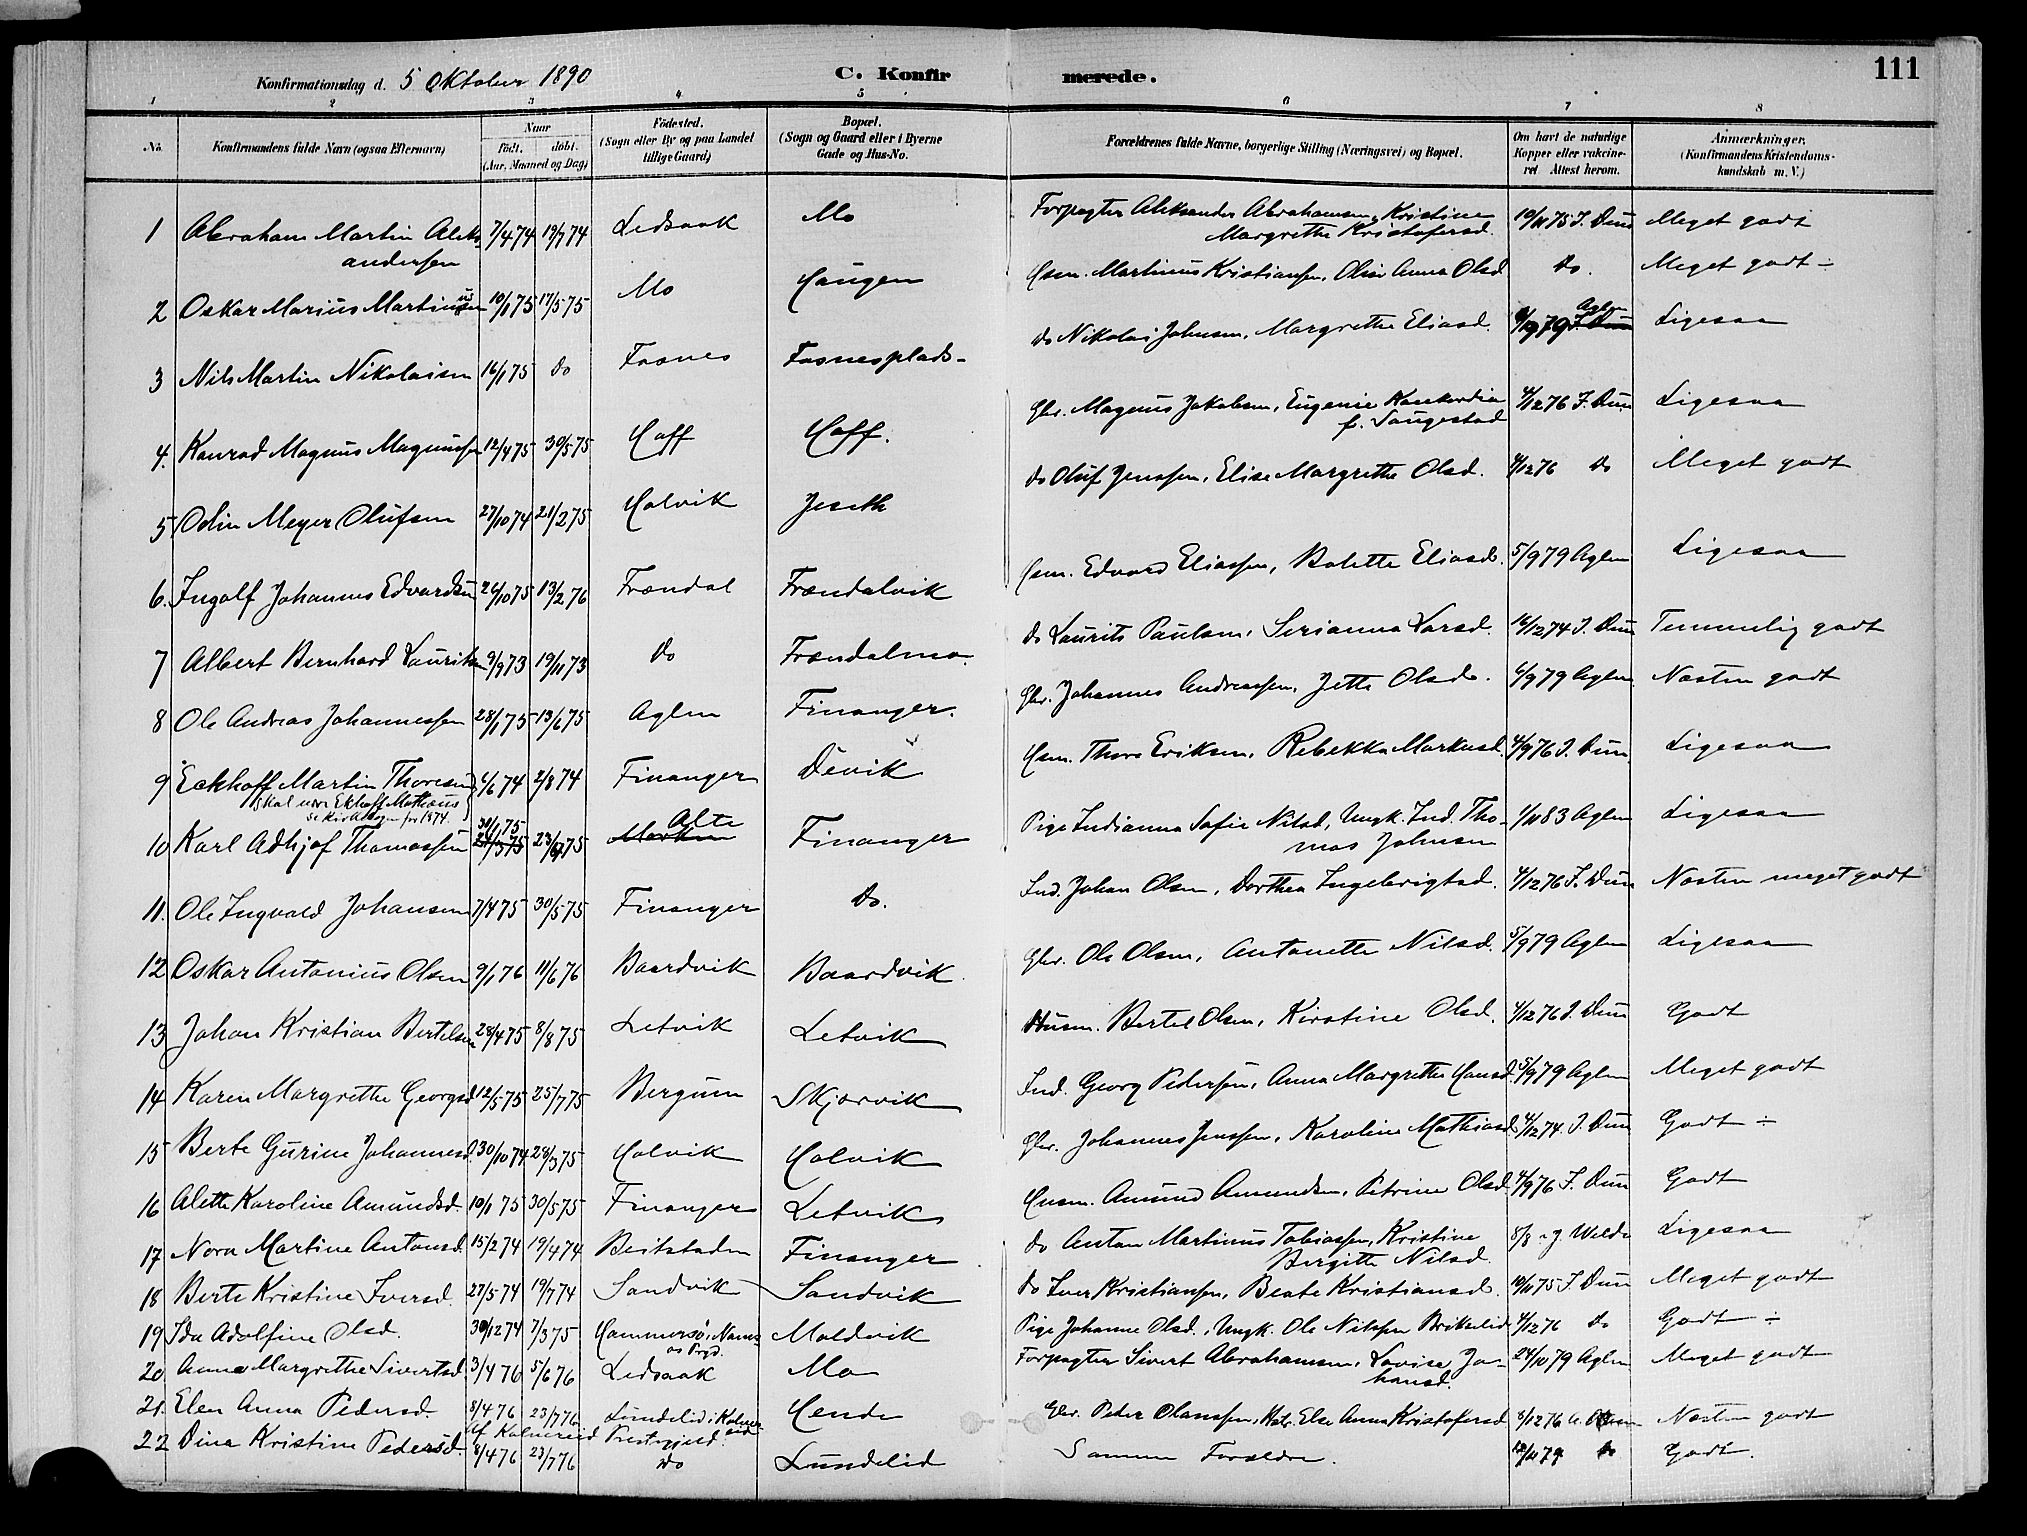 Konfirmationsdag d. 5 Oktober 1890 C. Konfirmerede. 111
1 2 3 4 5 6 7 8
No. Konfirmandens fulde Navn (ogsaa Efternavn) Naar født. døbt. (Aar, Maaned og Dag) Fødested. (Sogn eller By og paa Landet tillige Gaard) Bopæl. (Sogn og Gaard eller i Byerne Gade og Hus-No. Forældrenes fulde Navne, borgerlige Stilling (Næringsvei) og Bopæl. Om havt de naturlige Kopper eller vakcineret Attest herom. Anmærkninger. (Konfirmandens Kristendomskundskab m. V.)
1 Abraham Martin Aleksandersen 7/4 74 19/7 74 Ledsaak Mo Forpagter Aleksander Abrahamsen, Kristine Margrethe Kristofersd. 10/11 75 I. Dun Meget godt
2 Oskar Marius Martinussen 10/1 75 17/5 75 Mo Haugen Hsm. Martinus Kristiansen, Oline Anna Olsd do. Meget godt ÷
3 Nils Martin Nikolaisen 16/1 75 do Fosnes Fosnesplads do Nikolai Johnsen, Margrethe Eliasd. 79 Aglen Ligesaa
4. Konrad Magnus Magnussen 12/4 75 30/5 75 Hoff Hoff. Gbr. Magnus Jakobsen, Eugenie Konkordia f. Saugestad 4/12 76 I. Dun Ligesaa
5 Odin Meyer Olufsen 27/10 74 21/2 75 Holvik Jeseth do Oluf Jenssen, Elise Margrethe Olsd. 4/12 76 do Meget godt
6. Ingolf Johannes Edvardsen 26/10 75 13/2 76 Frændal Frændalvik Hsm. Edvard Eliassen, Bolette Eliasd. 5/9 79 Aglen Ligesaa
7 Albert Bernhard Lauritsen 9/9 73 19/11 73 do Frændalmo. do Laurits Paulsen, Serianna Larsd. 16/12 74 I. Dun Temmelig godt
8 Ole Andreas Johannessen 28/1 75 13/6 75 Aglen Finanger. Gbr. Johannes Andreassen, Jette Olsd. 6/9 79 Aglen Næsten godt
9 Eckhoff Martin Thoresen 6/6 74 2/8 74 Finanger Devik Hsm. Thore Eriksen, Rebekka Markusd. 4/9 76 I. Dun Ligesaa
skal være Ekhoff Mathæus
se Kirkebogen for 1874.
10 Karl Adhjof Thomassen 30/1 75 23/ 75 Alte Finanger Pige Indianna Sofie Nilsd, Ungk. Ind. Thomas Johnsen 1/11 83 Aglen Ligesaa
11. Ole Ingvald Johansen 7/4 75 30/5 75 Finanger do. Ind. Johan Olsen, Dorthea Ingebrigtsd. 4/12 76 I. Dun Næsten meget godt
12 Oskar Antonius Olsen 9/1 76 11/6 76 Baardvik Baardvik Gbr. Ole Olsen, Antonette Nilsd. 5/9 79 Aglen Ligesaa
13 Johan Kristian Bertelsen 28/4 75 8/8 75 Letvik Letvik Husm. Bertel Olsen, Kirstine Olsd. 4/12 76 I. Dun Godt
14 Karen Margrethe Georgsd 12/5 75 25/7 75 Bergum Skjærvik Ind. Georg Pedersen, Anna Margrethe Hansd. 5/9 79 Aglen Meget godt
15 Berte Gurine Johannesd. 30/10 74 28/3 75 Holvik Holvik Gbr. Johannes Jenssen, Karoline Mathiasd 4/12 74. I. Dun Godt ÷
16 Alette Karoline Amundsd. 10/1 75 30/5 75 Finanger Letvik Husm. Amund Amundsen, Petrine Olsd. 4/9 76 I. Dun Godt
17 Nora Martine Antonsd. 15/2 74 19/4 74 Beitstaden Finanger do Anton Martinus Tobiassen, Kristine Bergitte Nilsd. 8/8 Welde Ligesaa
18 Berte Kristine Iversd. 27/5 74 19/7 74 Sandvik Sandvik do Iver Kristiansen, Beate Kristiansd. 10/11 75 I. Dun Meget godt
19 Ida Adolfine Olsd. 30/12 74 7/3 75 Hammersø, Namsos Prgd. Moldvik Pige Johanne Olsd., Ungk. Ole Nilssen 4/12 76 do Godt ÷
20 Anna Margrethe Sivertsd. 3/4 76 5/6 76 Ledsaak Mo Forpagter Sivert Abrahamsen, Lovise Johansd. 24/10 79 Aglen Meget godt
21. Elen Anna Pedersd. 8/4 76 23/7 76 Lundelid i Kolvereid Præstegjeld. Hende Gbr. Peder Olaussen, Else Anna Kristofersd 8/12 76 Næsten godt
af Kolvereid
22 Dina Kristine Pedersd. 8/4 76 23/7 76 do Lundelid Samme Forældre. do Godt.